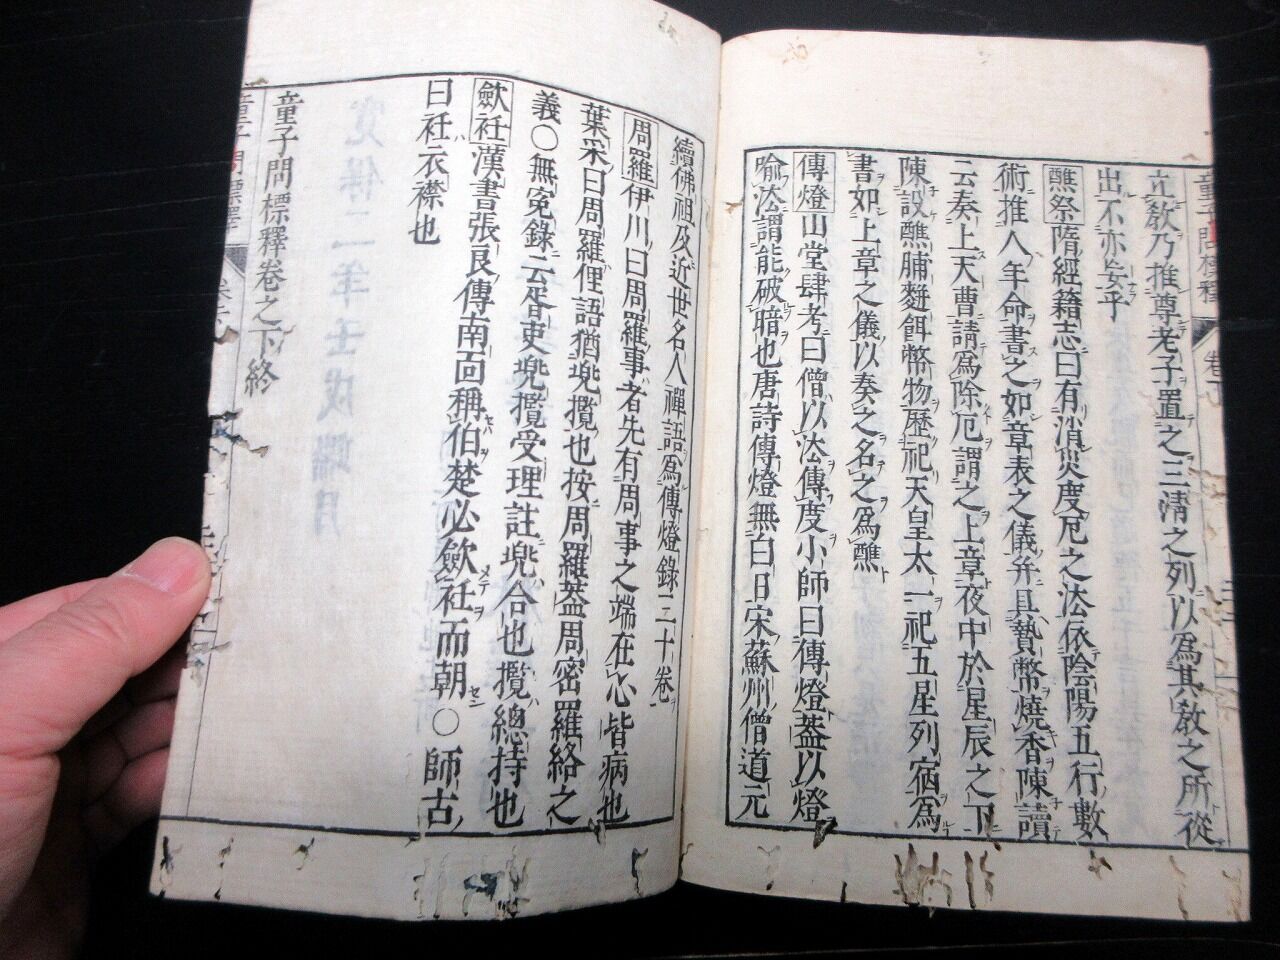 立教乃推尊老子置之三淸之列以為其教之所從
出不亦妄乎
醮祭隋經籍志曰有消災度厄之法依陰陽五行數
術推人年命書之如章表之儀并具贄幣燒香陳讀
云奏上天曹請爲除厄謂之上章夜中於星辰之下
陳設醮脯麪餌幣物歷祀天皇太一祀五星列宿爲
書如上章之儀以奏之名之爲醮
傳燈山堂肆考曰僧以法傳度小師曰傳燈蓋以燈
喩法謂能破暗也唐詩傳燈無白日宋蘇州僧道元
續佛祖及近世名人禪語爲傳燈錄三十卷
周羅伊川曰周羅事者先有周事之端在心皆病也
葉采曰周羅俚語猶兜攬也按周羅蓋周密羅絡之
義○無寃錄云胥吏兜攬受理註兜合也攬總持也
歛衽漢書張良傳南面稱伯楚必歛衽而朝○師古
曰衽衣襟也
童子問標釋卷之下終
童子問標釋